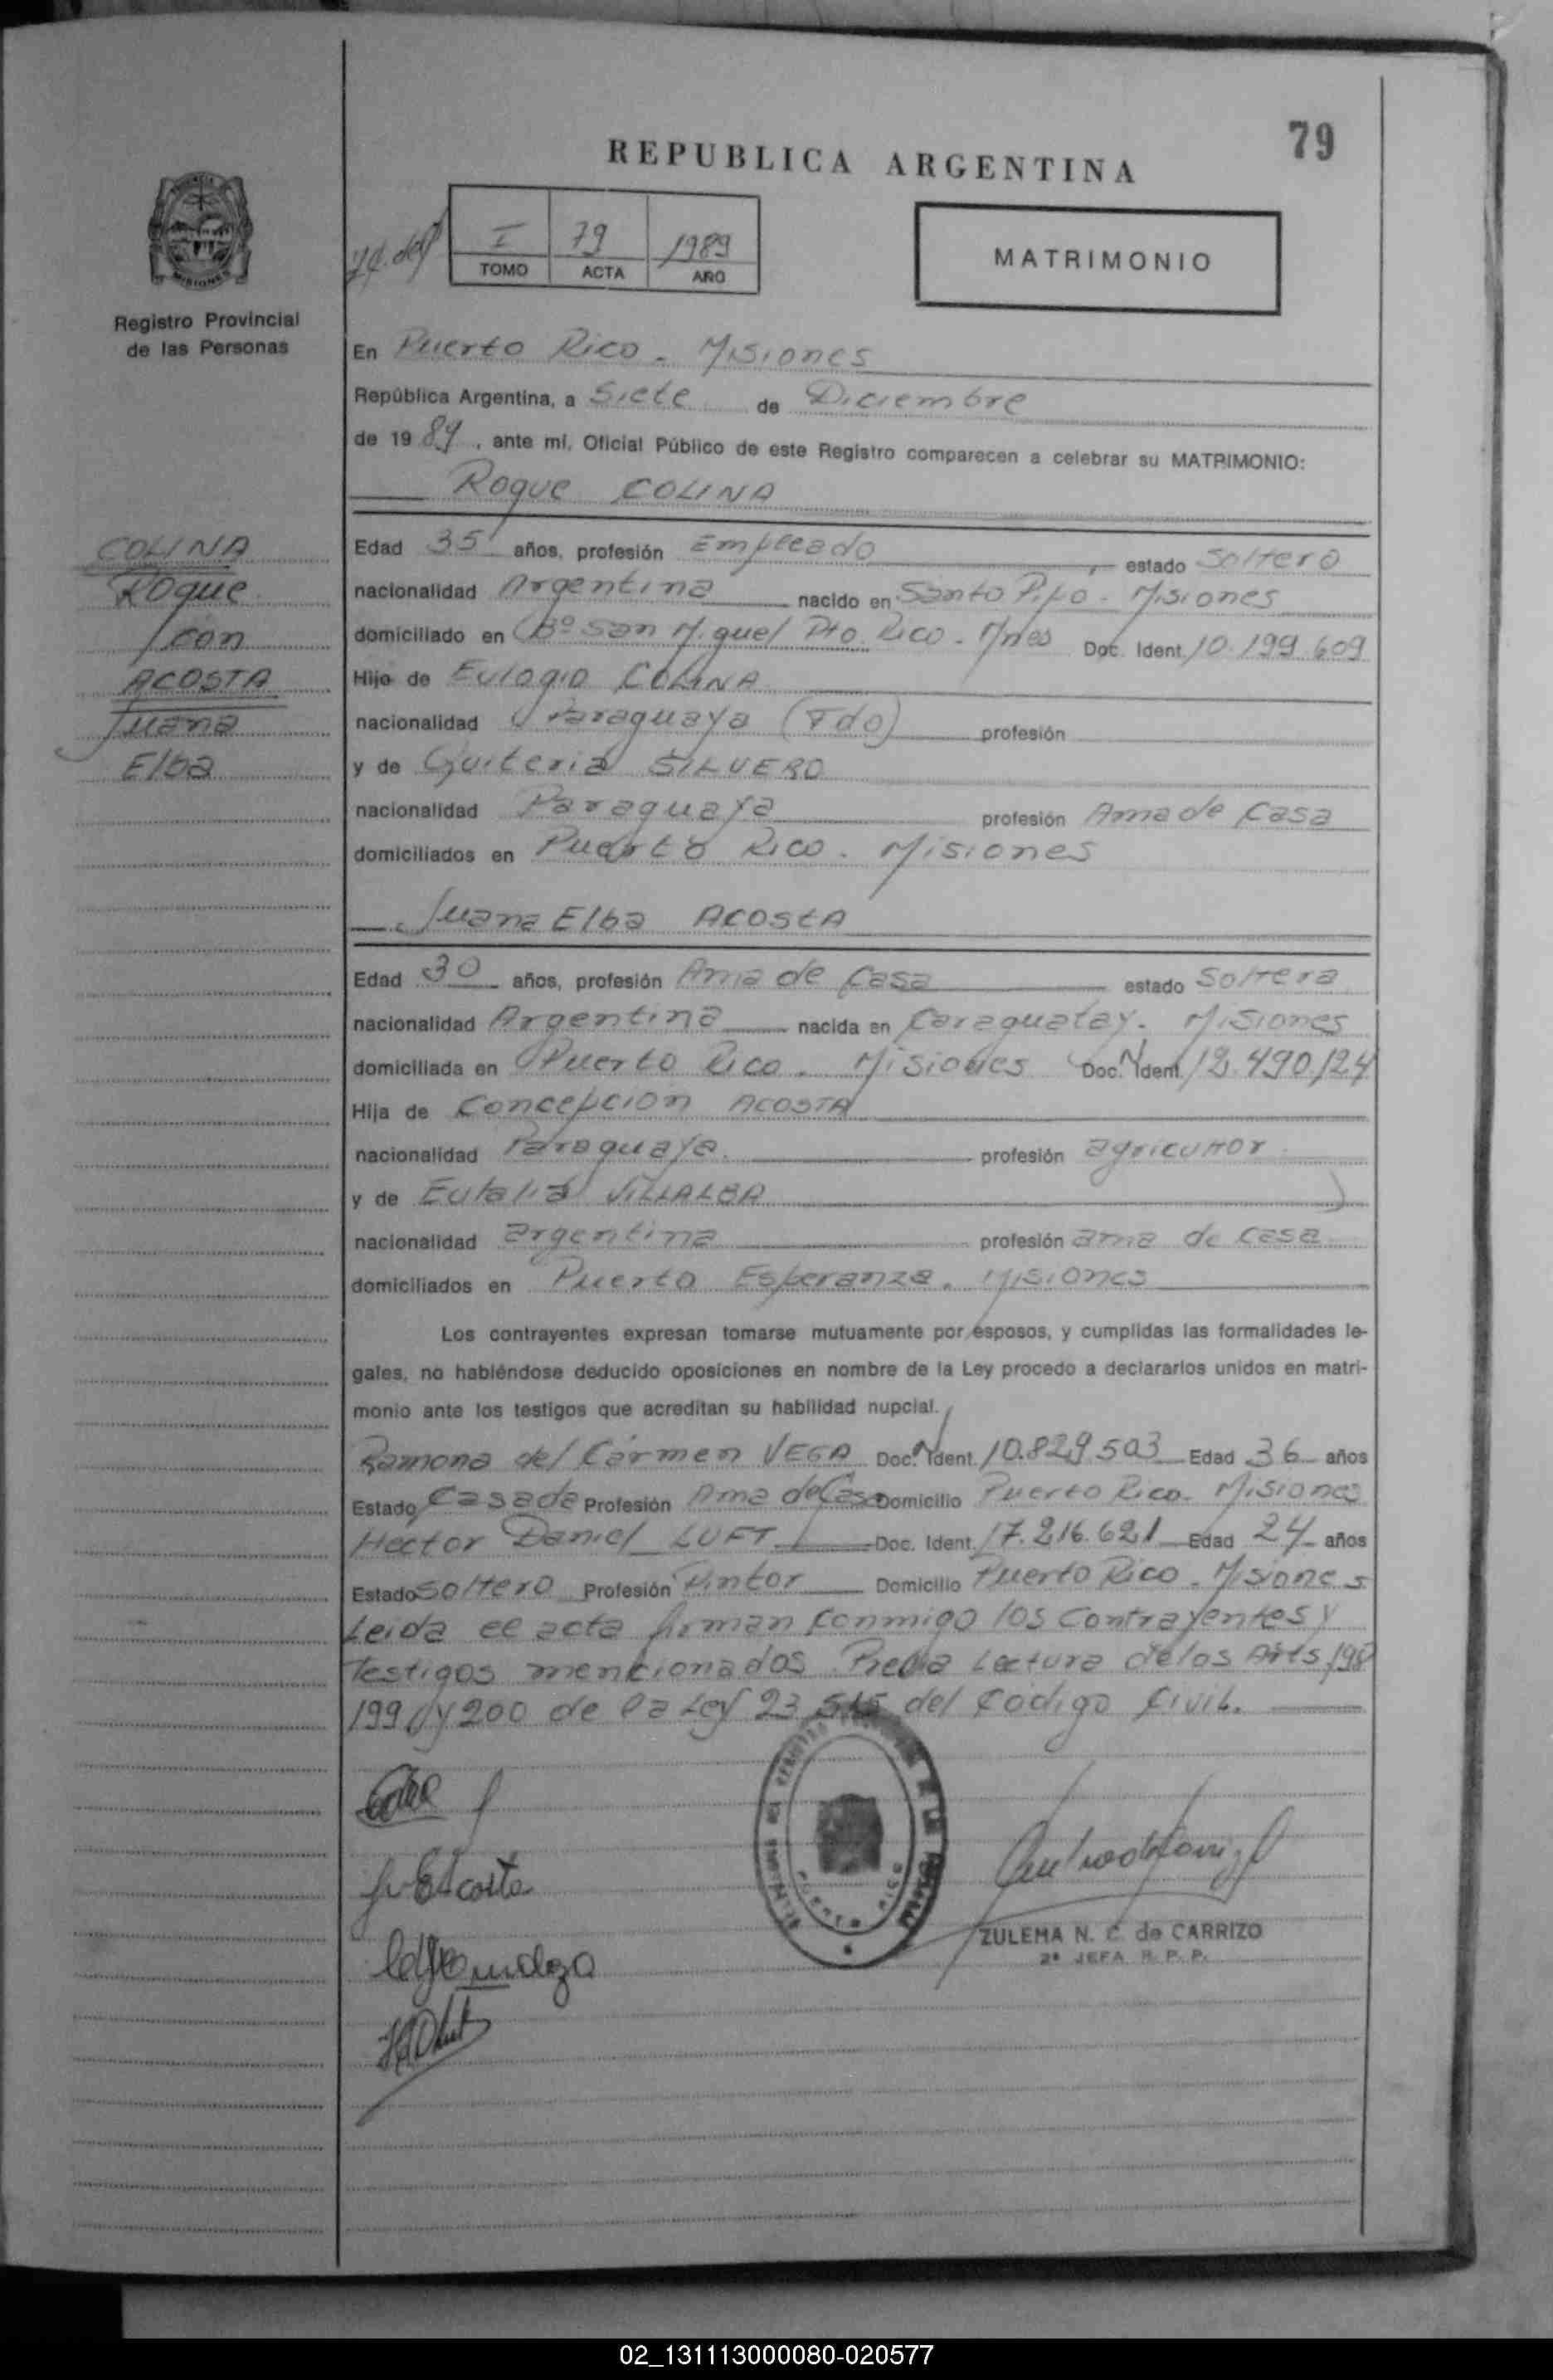 79
REPUBLICA ARGENTINA
I 79 1989
TOMO ACTA AÑO
MATRIMONIO
Registro Provincial
de las Personas
En Puerto Rico - Misiones
República Argentina, a Siete de Diciembre
de 1989, ante mí, Oficial Público de este Registro comparecen a celebrar su MATRIMONIO:
Roque COLINA
COLINA
Roque
con
ACOSTA
Juana
Elba
Edad 35 años, profesión Empleado, estado Soltero
nacionalidad Argentina nacido en Santo Pipo - Misiones
domiciliado en Bº San Miguel Pto. Rico - Mnes Doc. Ident. 10.199.609
Hijo de Eulogio COLINA
nacionalidad Paraguaya (Fdo) profesión
y de Quiteria SILVERO
nacionalidad Paraguaya profesión Ama de Casa
domiciliados en Puerto Rico - Misiones
Juana Elba ACOSTA
Edad 30 años, profesión Ama de Casa estado Soltera
nacionalidad Argentina nacida en Caraguatay - Misiones
domiciliada en Puerto Rico - Misiones Doc. Ident.
Hija de Concepcion ACOSTA
nacionalidad Paraguaya profesión agricultor
y de Eulalia VILLALBA
nacionalidad argentina profesión ama de casa
domiciliados en Puerto Esperanza - Misiones
Los contrayentes expresan tomarse mutuamente por esposos, y cumplidas las formalidades le-
gales, no habiéndose deducido oposiciones en nombre de la Ley procedo a declararlos unidos en matri-
monio ante los testigos que acreditan su habilidad nupcial.
Ramona del Cármen VEGA Doc. Ident. 10.829.503 Edad 36 años
Estado Casada Profesión Ama de Casa Domicilio Puerto Rico - Misiones
Hector Daniel LUFT Doc. Ident. 17.216.621 Edad 24 años
Estado Soltero Profesión Pintor Domicilio Puerto Rico - Misiones
Leida el acta firman conmigo los contrayentes y
testigos mencionados. Previa Lectura de los Arts. 198
199 y 200 de la Ley 23.515 del Código Civil.
PUERTO RICO
ZULEMA N. C. de CARRIZO
2ª JEFA R. P. P.
02_131113000080-020577